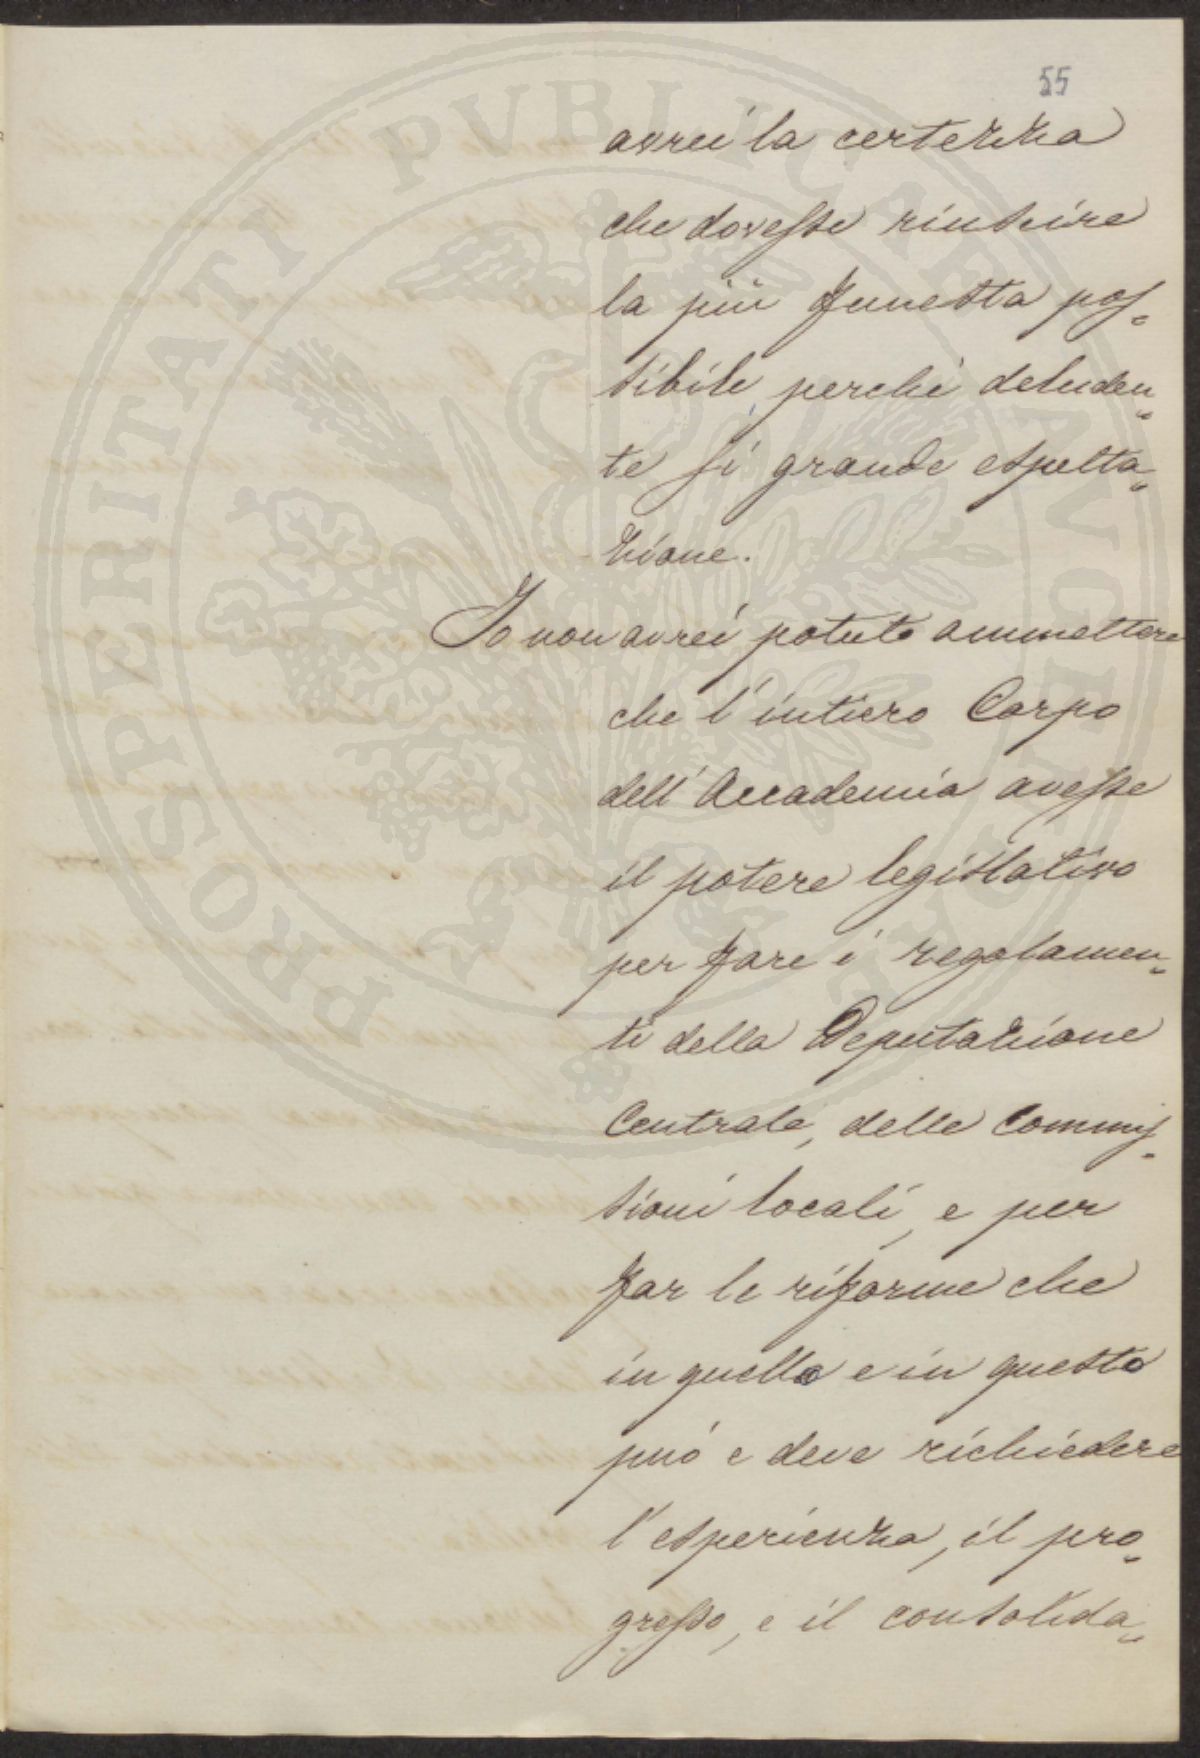 PROSPERITATI PVBLICAE AVGENDAE
55
avrei la certezza
che dovesse riuscire
la più funesta pos=
sibile, perchè deluden=
te sì grande espetta=
zione.
Io non avrei potuto ammettere
che l'intiero Corpo
dell'Accademia avesse
il potere legislativo
per fare i regolamen=
ti della Deputazione
Centrale, delle Commis=
sioni locali, e per
far le riforme che
in quello e in questo
può e deve richiedere
l'esperienza, il pro=
gresso, e il consolida=